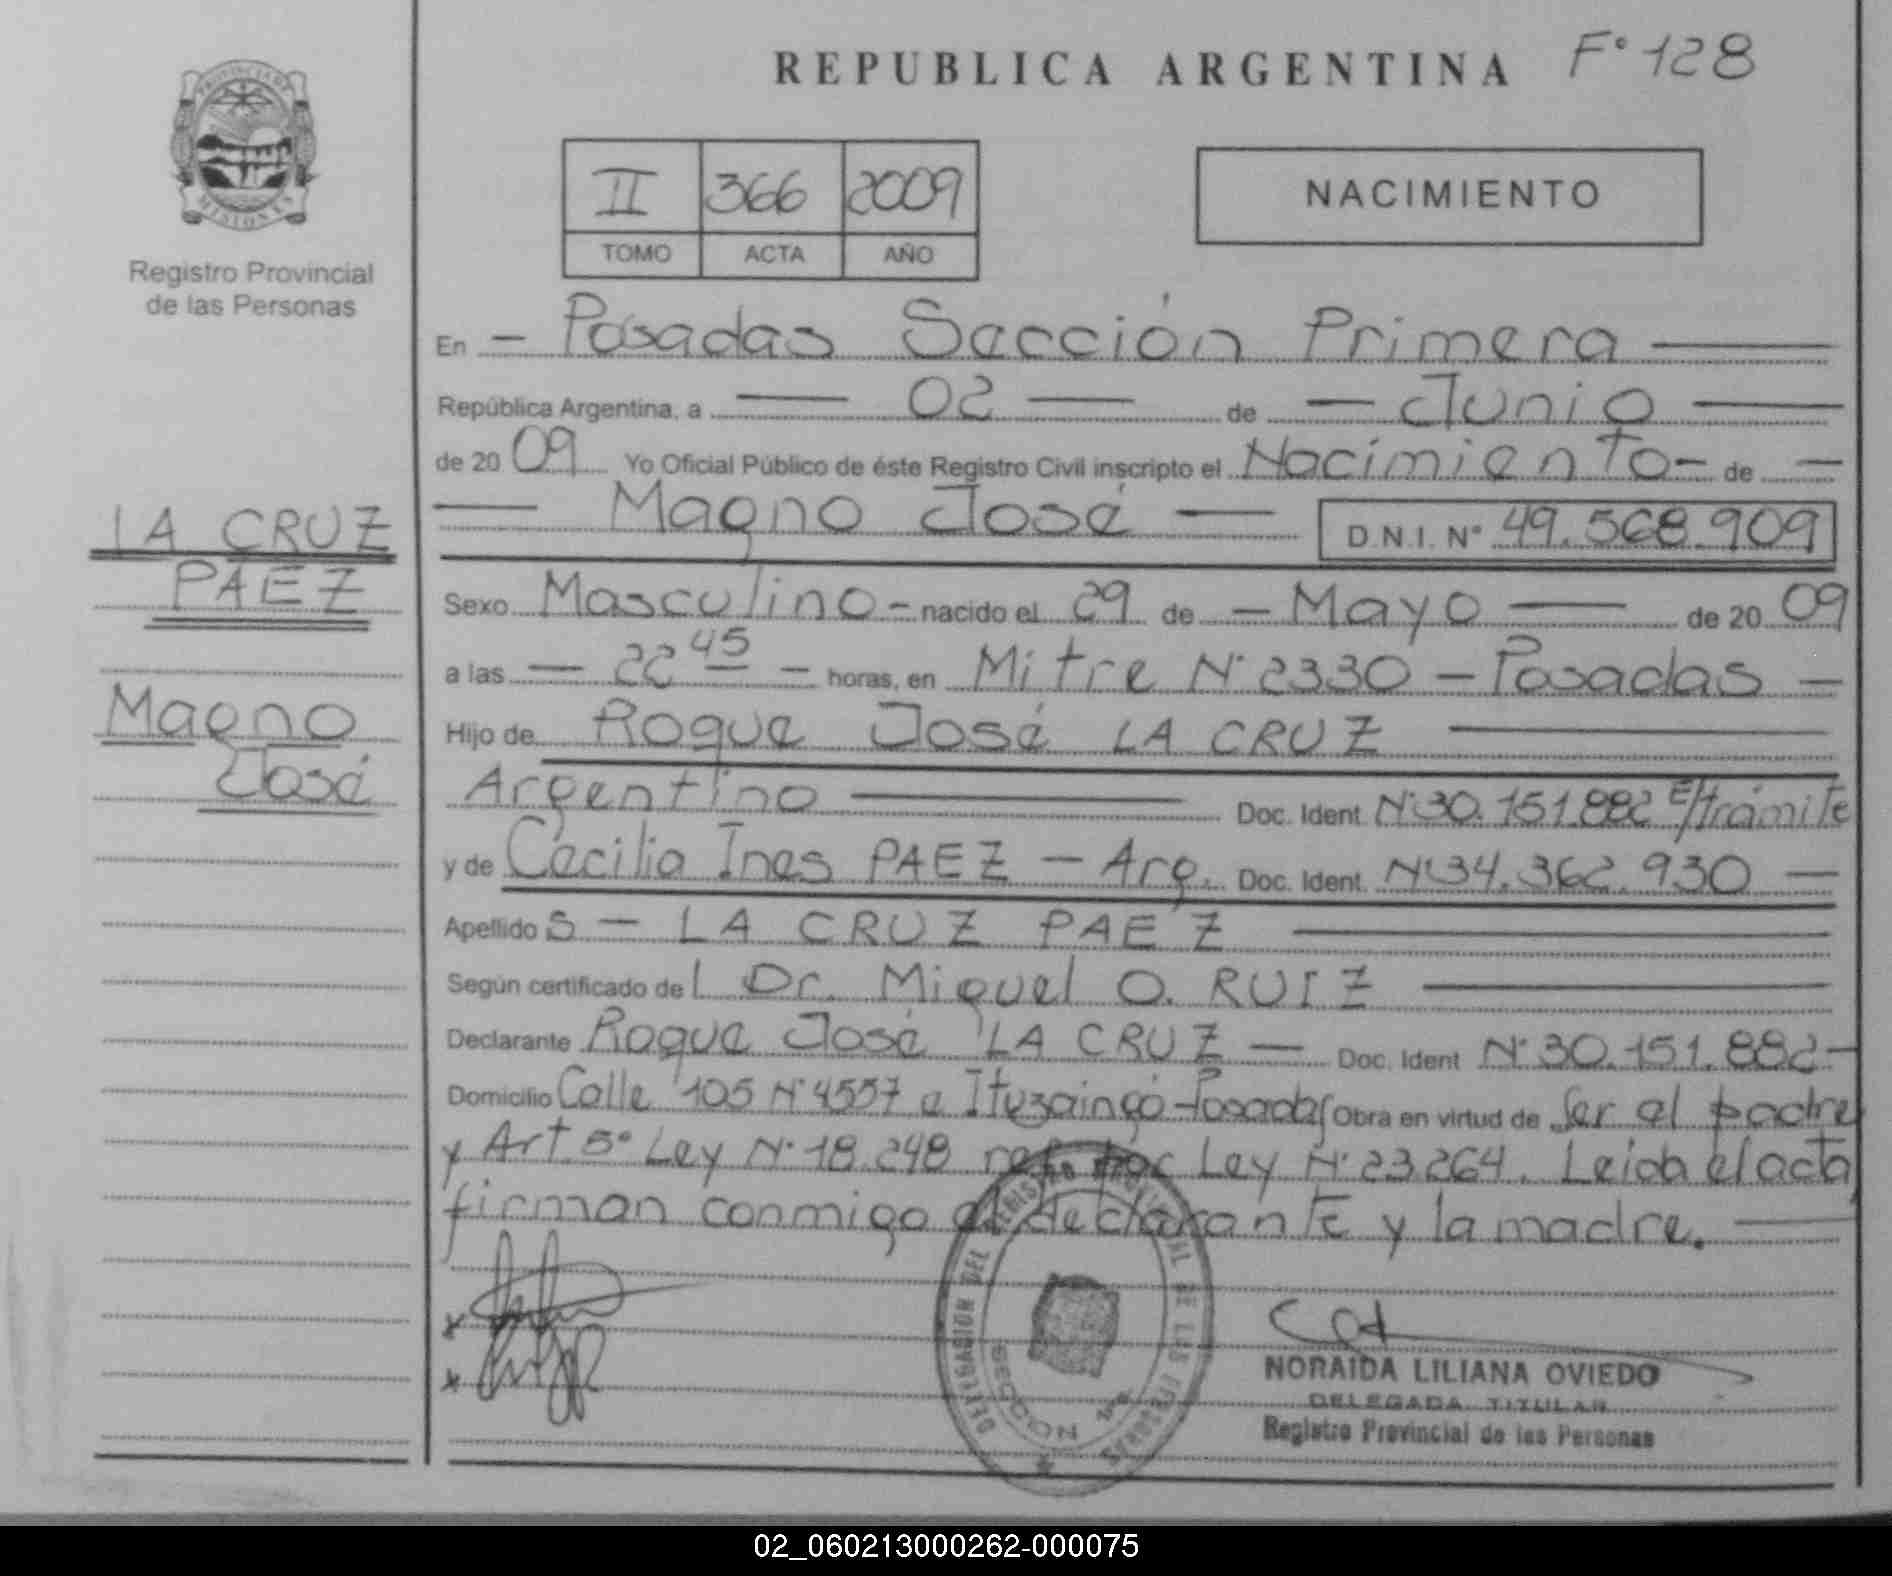 REPUBLICA ARGENTINA Fº 128
PROVINCIA DE
MISIONES
Registro Provincial
de las Personas
II 366 2009
TOMO ACTA AÑO
NACIMIENTO
En – Posadas Sección Primera —
República Argentina, a — 02 — de — Junio —
de 20 09 Yo Oficial Público de éste Registro Civil inscripto el Nacimiento – de —
— Magno José — D.N.I. Nº 49.568.909
LA CRUZ
PAEZ
Magno
José
Sexo Masculino – nacido el 29 de – Mayo — de 20 09
a las — 22 45 – horas, en Mitre Nº 2330 – Posadas –
Hijo de Roque José LA CRUZ —
Argentino — Doc. Ident. Nº 30.151.882 E/trámite
y de Cecilia Ines PAEZ – Arg. Doc. Ident. Nº 34.362.930 —
Apellido S – LA CRUZ PAEZ —
Según certificado de l Dr. Miguel O. RUIZ —
Declarante Roque José LA CRUZ — Doc. Ident Nº 30.151.882 –
Domicilio Calle 105 Nº 4557 e Ituzaingó - Posadas Obra en virtud de Ser el padre
y Art. 5º Ley Nº 18.248 ref. por Ley Nº 23.264. Leida el acta
firman conmigo el declarante y la madre. —
x
x
DELEGACION DEL REGISTRO PROVINCIAL DE LAS PERSONAS
SECCION 1ra
NORAIDA LILIANA OVIEDO
DELEGADA TITULAR
Registro Provincial de las Personas
02_060213000262-000075